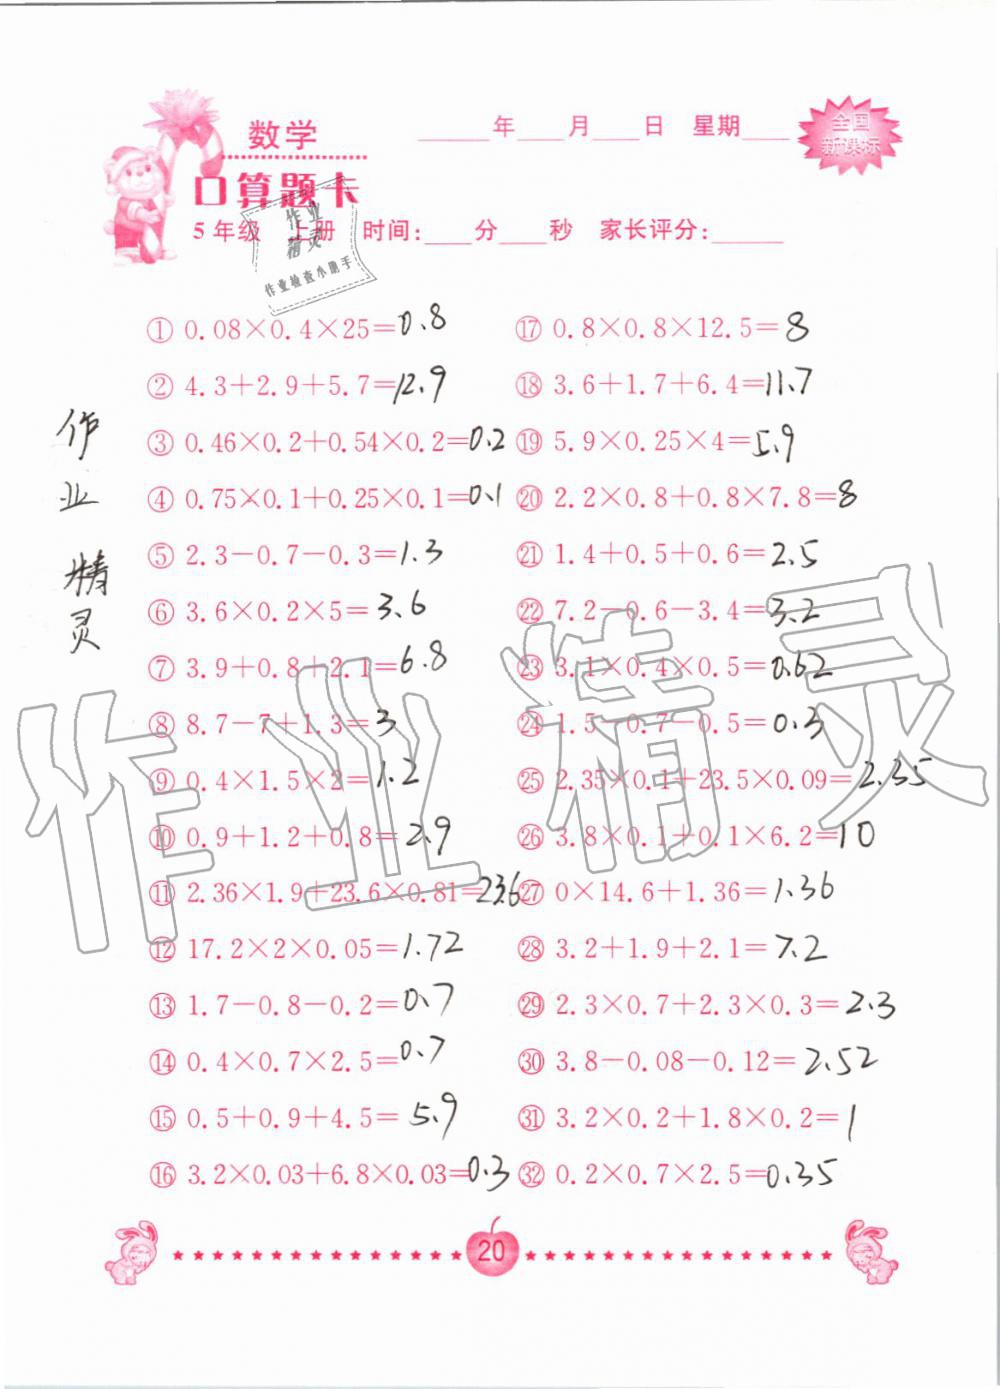 数学
____年___月___日 星期___
全国
新课标
口算题卡
5年级 上册 时间:___分___秒 家长评分:____
作业
精灵
作业检查小助手
① 0.08×0.4×25=0.8
② 4.3+2.9+5.7=12.9
③ 0.46×0.2+0.54×0.2=0.2
④ 0.75×0.1+0.25×0.1=0.1
⑤ 2.3-0.7-0.3=1.3
⑥ 3.6×0.2×5=3.6
⑦ 3.9+0.8+2.1=6.8
⑧ 8.7-7+1.3=3
⑨ 0.4×1.5×2=1.2
⑩ 0.9+1.2+0.8=2.9
⑪ 2.36×1.9+23.6×0.81=23.6
⑫ 17.2×2×0.05=1.72
⑬ 1.7-0.8-0.2=0.7
⑭ 0.4×0.7×2.5=0.7
⑮ 0.5+0.9+4.5=5.9
⑯ 3.2×0.03+6.8×0.03=0.3
⑰ 0.8×0.8×12.5=8
⑱ 3.6+1.7+6.4=11.7
⑲ 5.9×0.25×4=5.9
⑳ 2.2×0.8+0.8×7.8=8
㉑ 1.4+0.5+0.6=2.5
㉒ 7.2-0.6-3.4=3.2
㉓ 3.1×0.4×0.5=0.62
㉔ 1.5-0.7-0.5=0.3
㉕ 2.35×0.1+23.5×0.09=2.35
㉖ 3.8×0.1+0.1×6.2=10
㉗ 0×14.6+1.36=1.36
㉘ 3.2+1.9+2.1=7.2
㉙ 2.3×0.7+2.3×0.3=2.3
㉚ 3.8-0.08-0.12=2.52
㉛ 3.2×0.2+1.8×0.2=1
㉜ 0.2×0.7×2.5=0.35
作业精灵
作业精灵
20